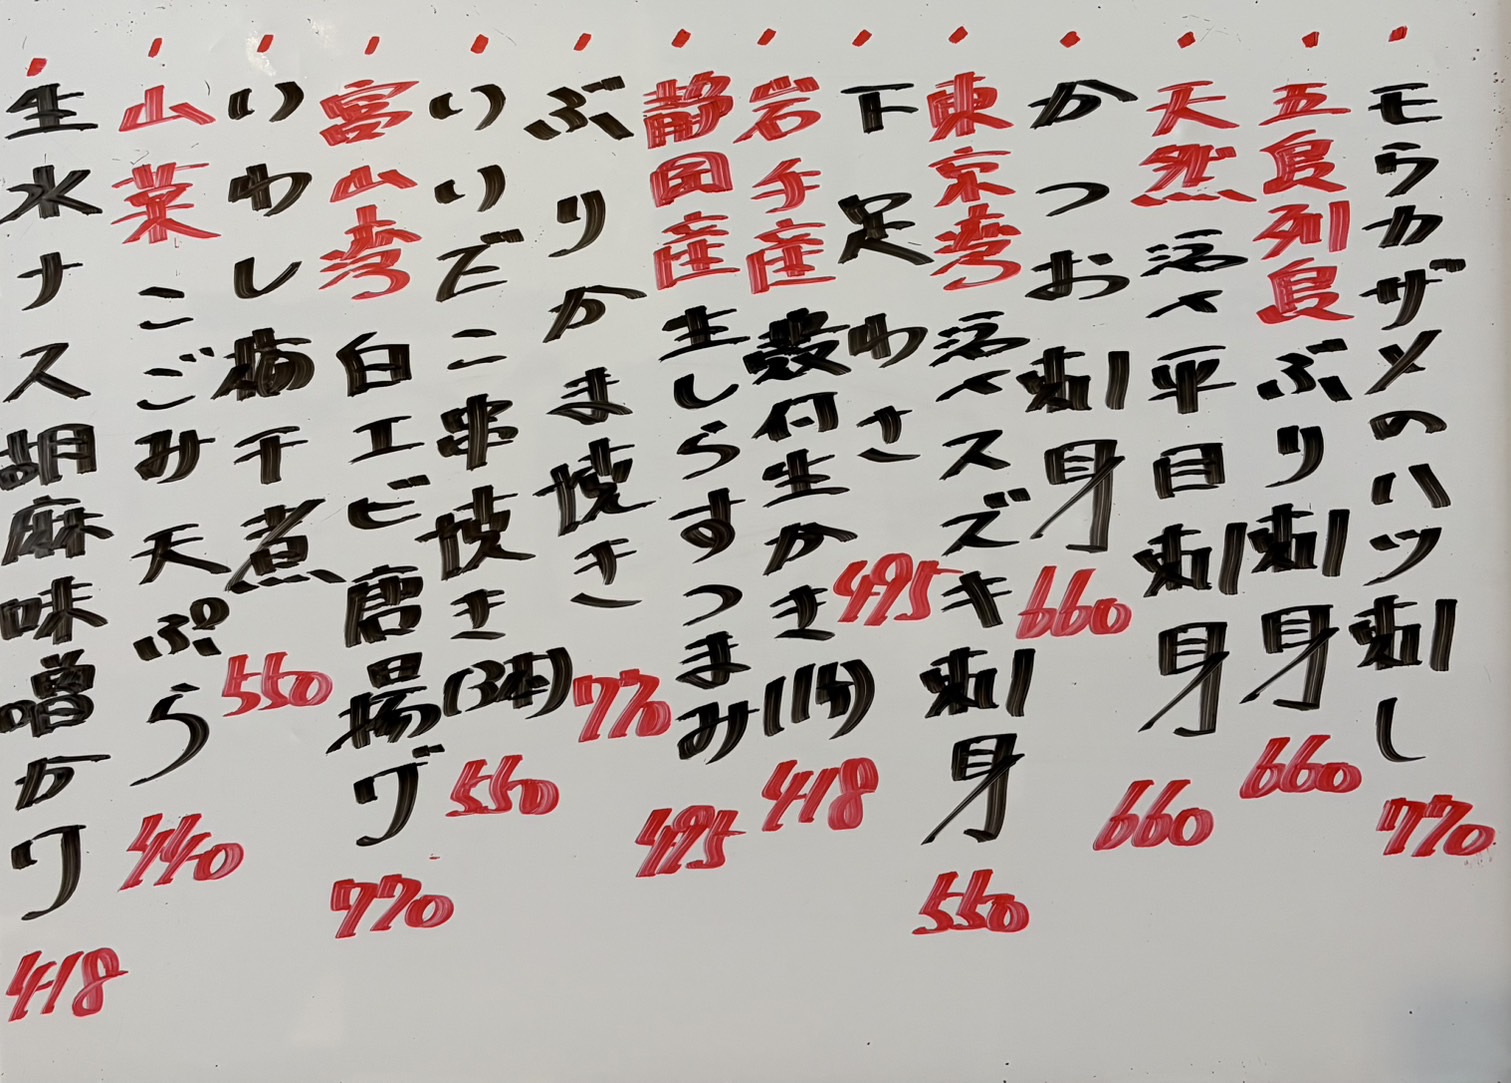 モウカザメのハツ刺し 770
五島列島ぶり刺身 660
天然活〆平目刺身 660
かつお刺身 660
東京湾活〆スズキ刺身 550
下足わさ 495
岩手産殻付生かき(1ケ) 418
静岡産生しらすつまみ 495
ぶりかま焼き 770
いいだこ串焼き(3本) 550
富山湾白エビ唐揚げ 770
いわし梅干煮 550
山菜こごみ天ぷら 440
生水ナス胡麻味噌かけ 418